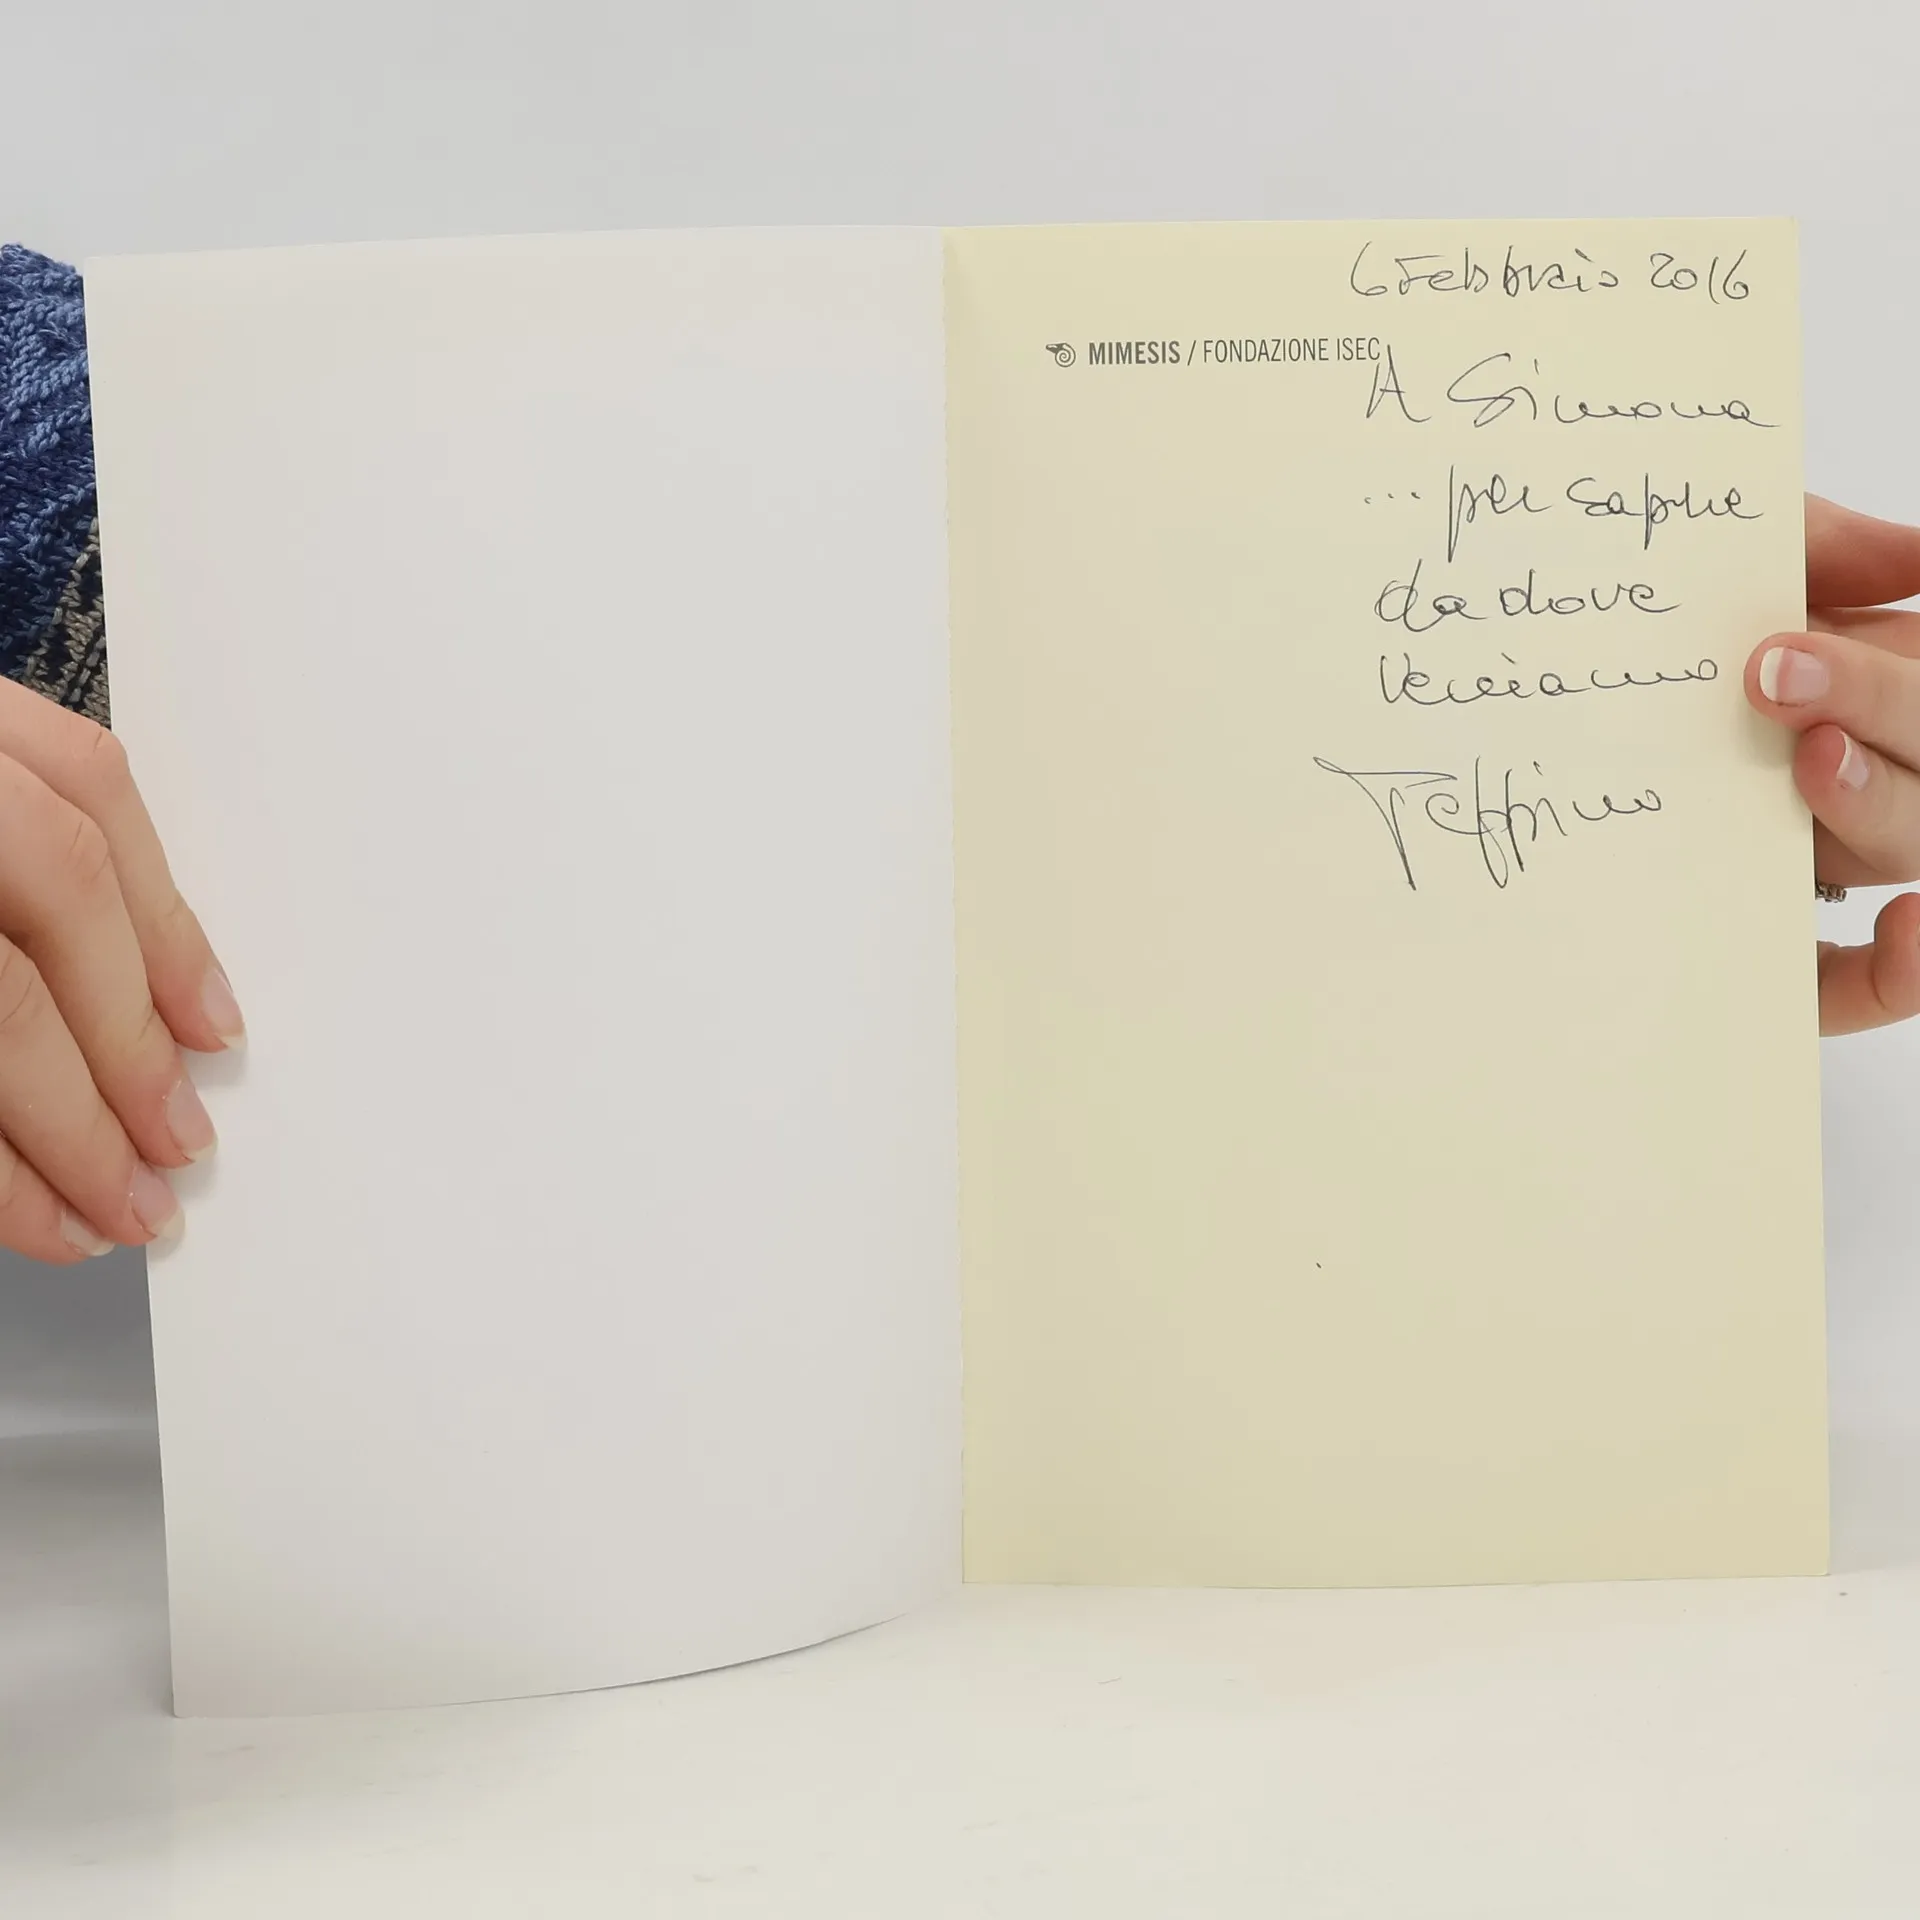 6 Febbraio 2016
MIMESIS / FONDAZIONE ISEC
A Simona
... per sapere
da dove
veniamo
Peppino